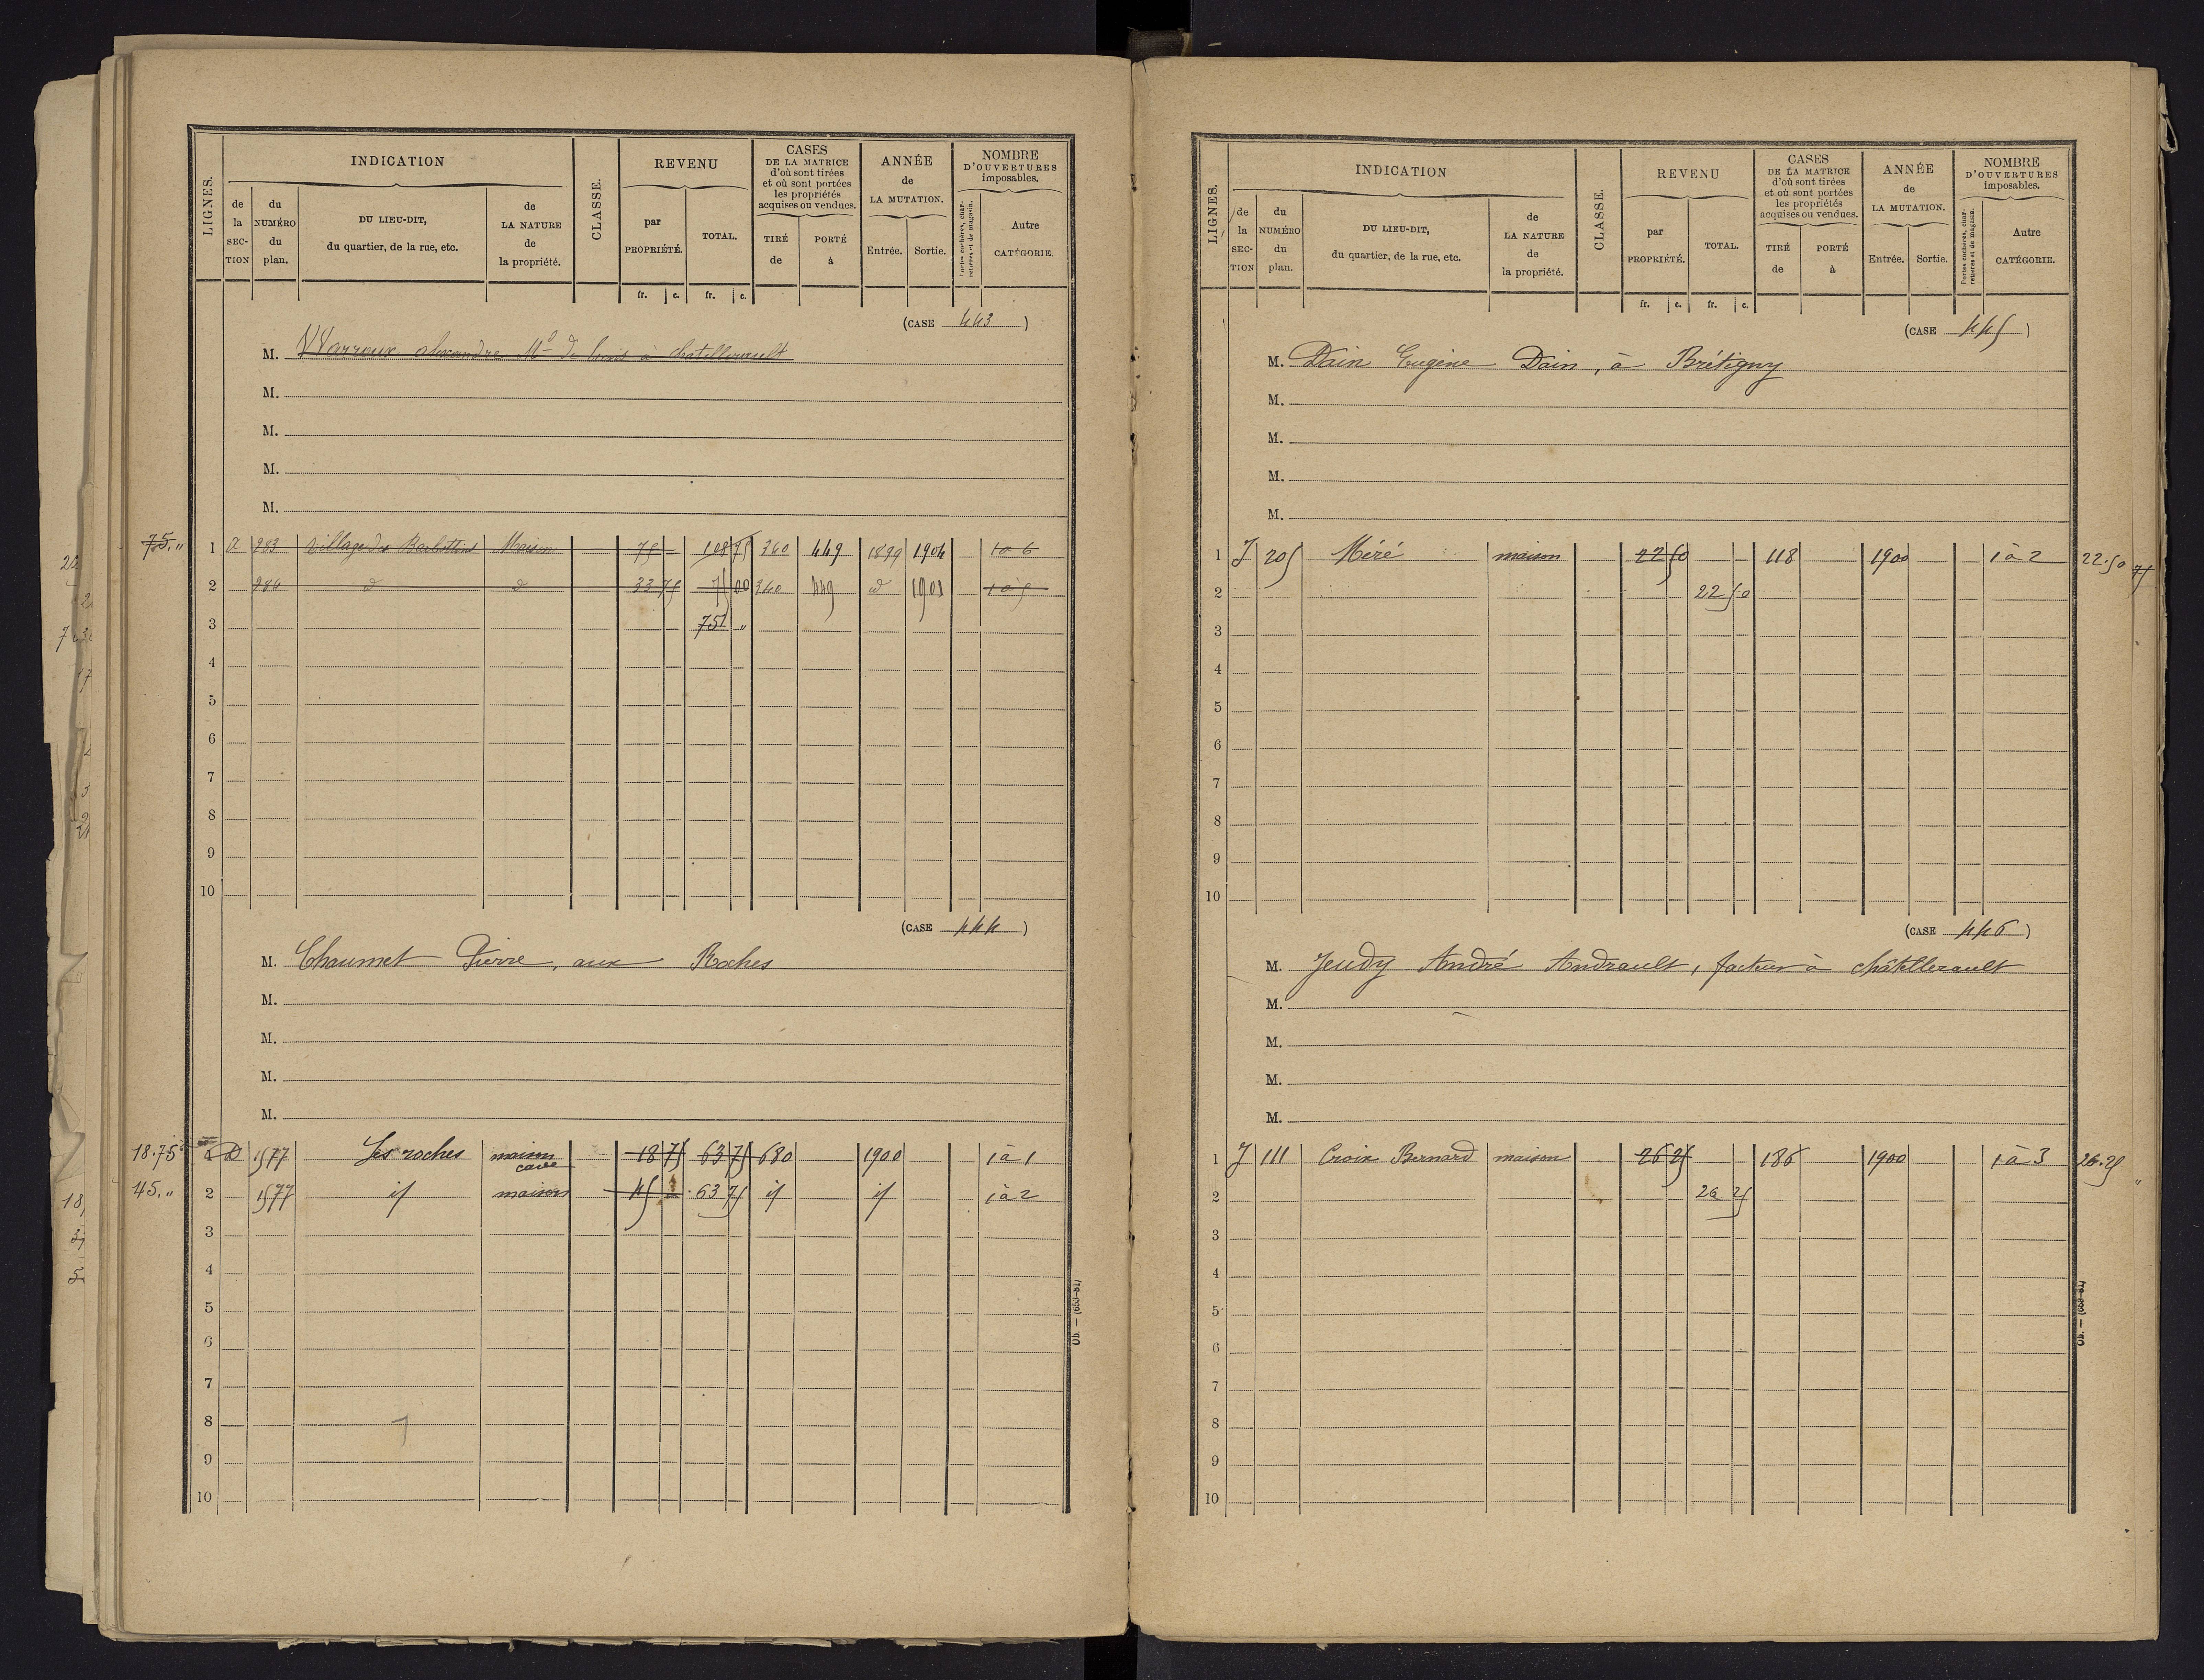 LIGNES. INDICATION CLASSE. REVENU CASES DE LA MATRICE d'où sont tirées et où sont portées les propriétés acquises ou vendues. ANNÉE de LA MUTATION. NOMBRE D'OUVERTURES imposables.
de la SECTION du NUMÉRO du plan. DU LIEU-DIT, du quartier, de la rue, etc. de LA NATURE de la propriété. par PROPRIÉTÉ. TOTAL. TIRÉ de PORTÉ à Entrée. Sortie. Portes cochères, charretières et de magasin. Autre CATÉGORIE.
fr. c. fr. c.
(CASE 443)
M. alexandre Md de bois à chatellerault
M.
M.
M.
M.
75. " 1 283 Village des Maison 75 108 75 360 449 1899 1904 1 à 6
2 284 d d 33 75 75 00 360 449 d 1901 1 à 5
3 75 "
4
5
6
7
8
9
10
(CASE 444)
M. Chaumet Pierre, aux Roches
M.
M.
M.
M.
18.75 1 D 1577 Les roches maison cave 18 75 63 75 680 1900 1 à 1
45. " 2 1577 if maison 45 63 75 if if 1 à 2
3
4
5
6
7
8
9
10
Ob. — (653-81)
LIGNES. INDICATION CLASSE. REVENU CASES DE LA MATRICE d'où sont tirées et où sont portées les propriétés acquises ou vendues. ANNÉE de LA MUTATION. NOMBRE D'OUVERTURES imposables.
de la SECTION du NUMÉRO du plan. DU LIEU-DIT, du quartier, de la rue, etc. de LA NATURE de la propriété. par PROPRIÉTÉ. TOTAL. TIRÉ de PORTÉ à Entrée. Sortie. Portes cochères, charretières et de magasin. Autre CATÉGORIE.
fr. c. fr. c.
(CASE 445)
M. Dain Eugène Dain, à Brétigny
M.
M.
M.
M.
1 J 205 Méré maison 22 50 118 1900 1 à 2 22.50
2 22 50
3
4
5
6
7
8
9
10
(CASE 446)
M. Jeudy André Andrault, facteur à châtellerault
M.
M.
M.
M.
1 J 111 Croix Bernard maison 26 25 186 1900 1 à 3 26.25
2 26 25
3
4
5
6
7
8
9
10
Ob. — (653-81)